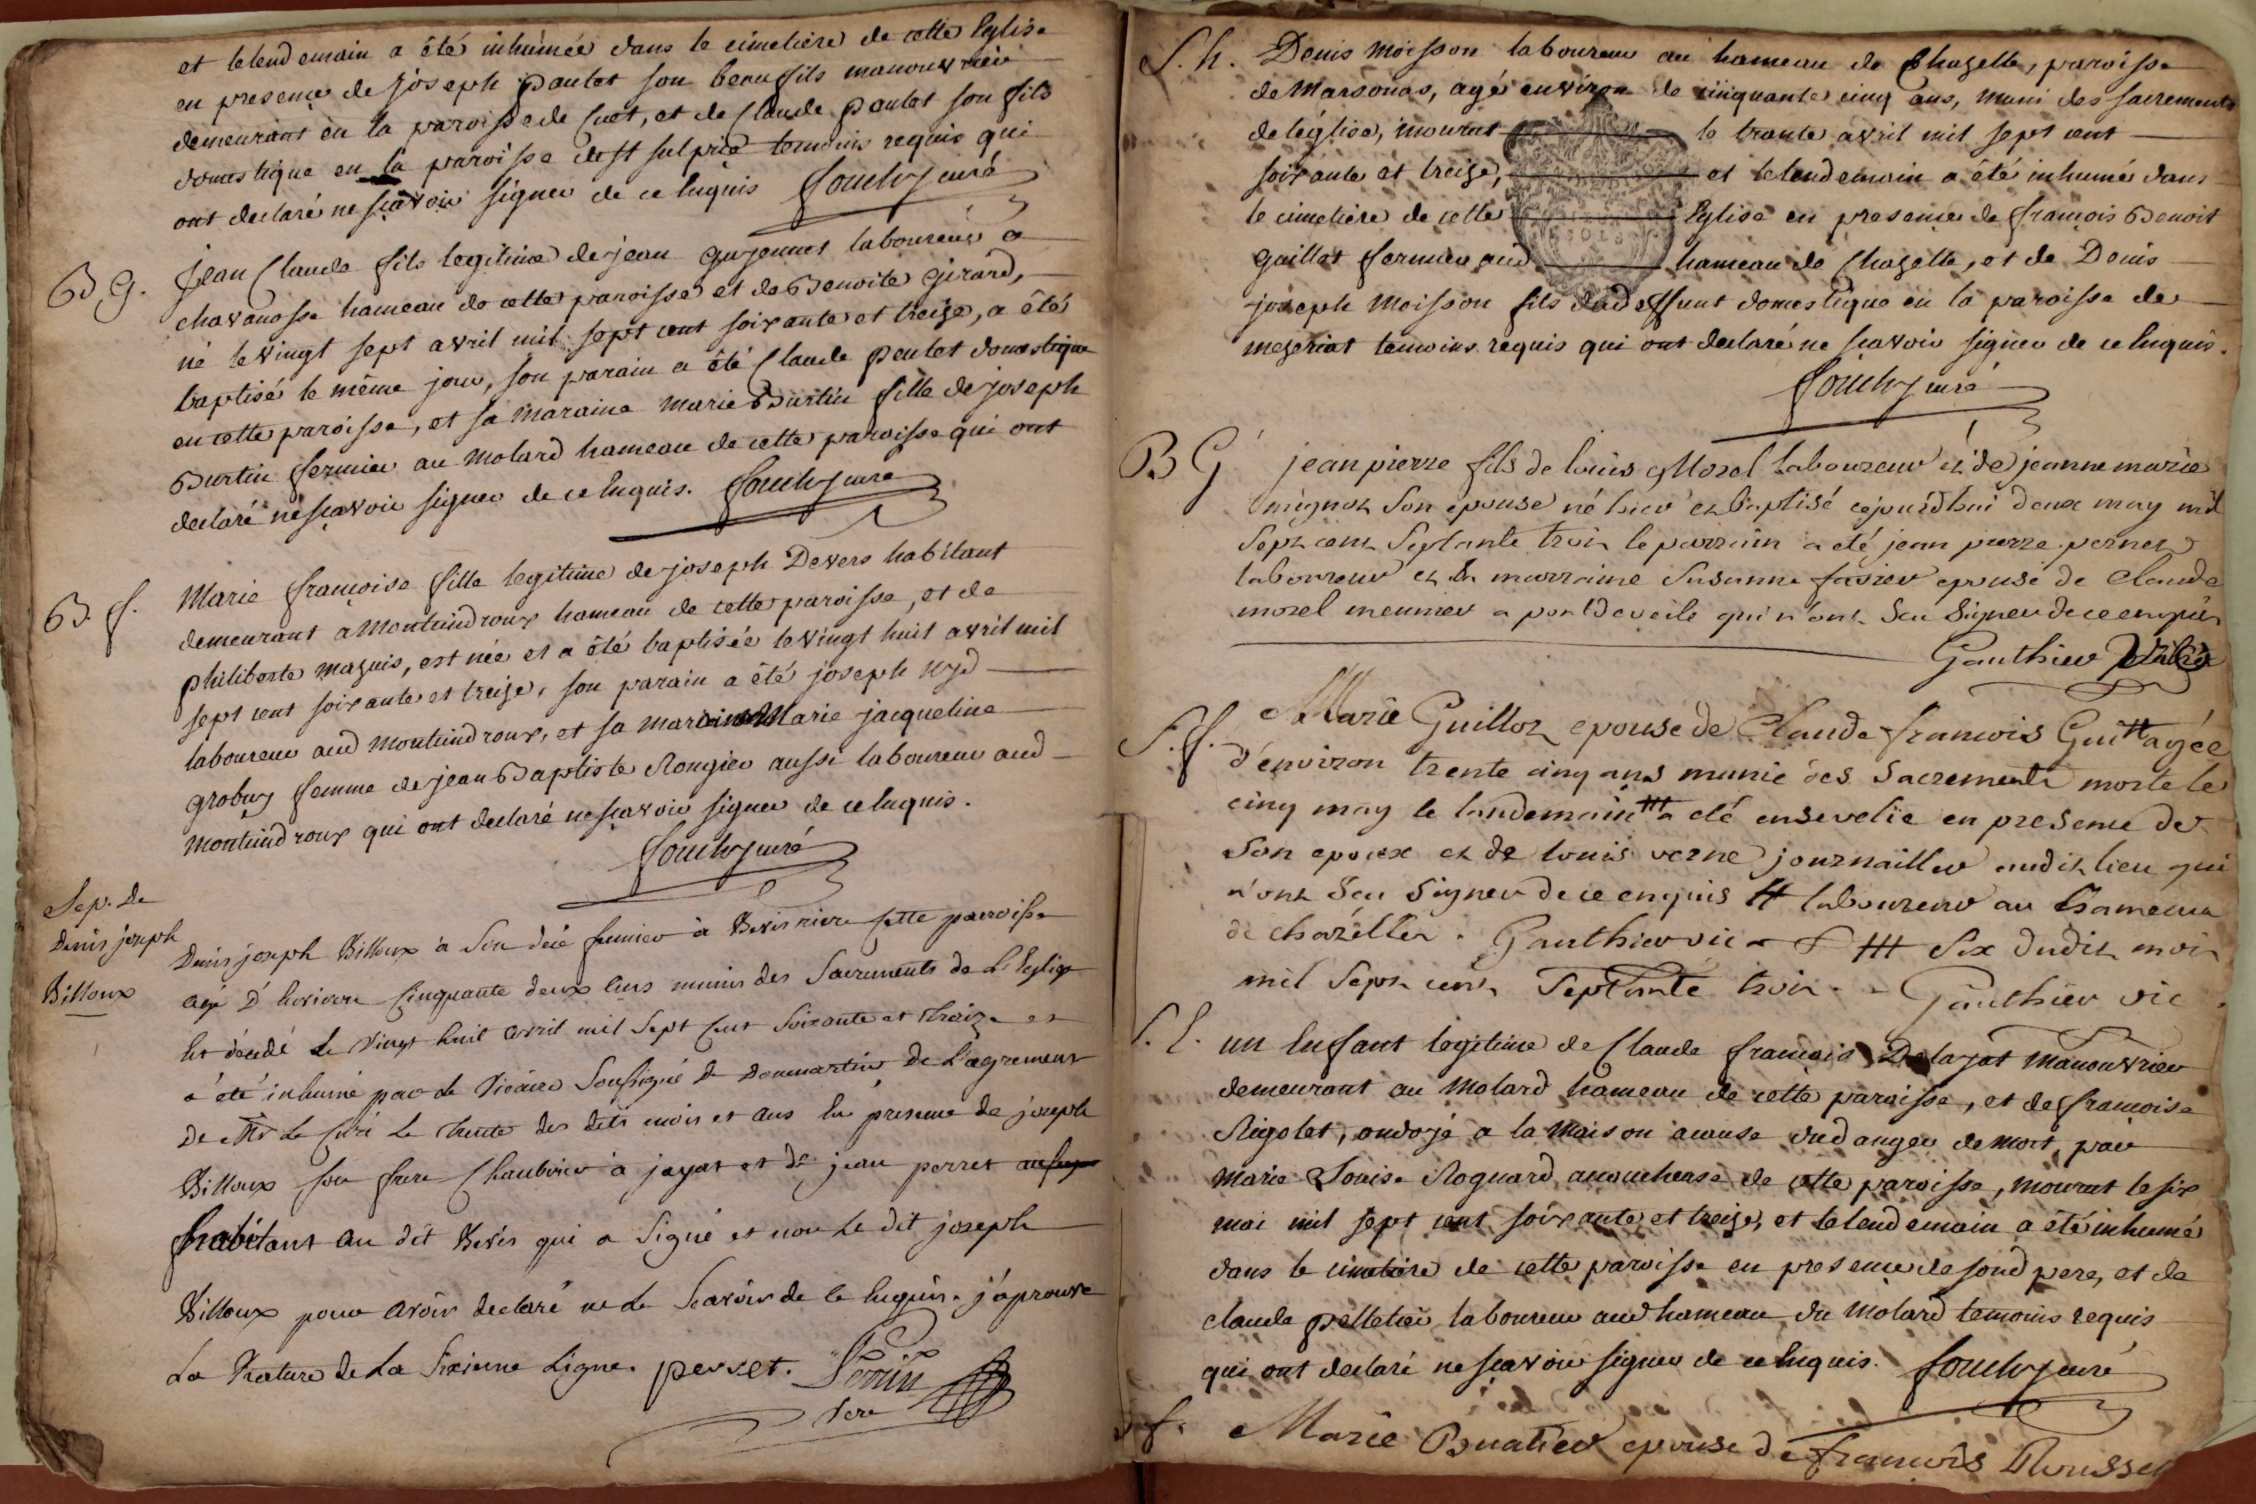 et le lendemain a été inhumée dans le cimetière de cette Eglise
en presence de joseph Pautet son beau fils manouvrier
demeurant en la paroisse de Cuet, et de Claude Pautet son fils
domestique en la paroisse de st sulpice temoins requis qui
ont declaré ne sçavoir signer de ce Enquis
curé
B G.
Jean Claude fils legitime de jean gujennet laboureur a
chavanosse hameau de cette paroisse et de Benoite Girard,
né le vingt sept avril mil sept cent soixante et treize, a été
baptisé le même jour, son parain a été Claude Pautet domestique
en cette paroisse, et sa maraine marie Burtin fille de joseph
Burtin fermier au molard hameau de cette paroisse qui ont
declaré ne sçavoir signer de ce Enquis.
curé
B. f.
Marie françoise fille legitime de joseph Devers habitant
demeurant a montaindroux hameau de cette paroisse, et de
philiberte maguis, est née et a été baptisée le vingt huit avril mil
sept cent soixante et treize, son parain a été joseph
laboureur aud montaindroux, et sa maraine Marie jacqueline
grobuy femme de jean Baptiste Rongier aussi laboureur aud
montaindroux qui ont declaré ne sçavoir signer de ce Enquis.
curé
Sep. de
Denis joseph
Billoux
Denis joseph Billoux a Son fermier à cette paroisse
agé D' Environ Cinquante deux Ans munis des Sacrements de L'Eglise
Est décédé Le Vingt huit avril mil Sept Cent Soixante et Treize et
a été inhumé par Le Vicaire Soussigné de Dommartin de L'agrement
De Mr Le Curé Le trente des dits mois et ans En presence de joseph
Billoux son frere à jayat et de jean perret
habitant au dit qui a Signé et non Le dit joseph
Billoux pour avoir declaré ne Le Scavoir de Ce Enquis. j'aprouve
La Rature de La Sixieme Ligne. perret.
S. h.
Denis Moisson laboureur au hameau de Chazelle, paroisse
de Marsonas, agé environ de cinquante cinq ans, muni des sacrements
de l'églice, mourut le trante avril mil sept cent
soixante et treize, et le lendemain a été inhumé dans
le cimetière de cette Eglise en presence de françois Benoit
Guillot fermier aud hameau de Chazelle, et de Denis
joseph Moisson fils dud deffunt domestique en la paroisse de
mezeriat temoins requis qui ont declaré ne sçavoir signer de ce Enquis.
curé
B G
jean pierre fils de louis Morel laboureur et de jeanne marie
mignot son epouse né hier et baptisé cejourdhui deux may mil
Sept cent Septante trois le parrain a été jean pierre pernet
laboureur et la marraine Susanne favier epouse de Claude
morel meunier a pont de veile qui n'ont Seu Signer de ce enquis
Gauthier
S. f.
Marie Guillot epouse de Claude francois Guillt agée
d'environ trente cinq ans munie des Sacrements morte le
cinq may le landemain ⧻ a été ensevelie en presence de
Son epoux et de louis verne journaillier audit lieu qui
n'ont Seu Signer de ce enquis # laboureur au hameau
de chazelles. Gauthier vic ⧻ Six dudit mois
mil Sept cent Septante trois. Gauthier vic
S. E.
un Enfant legitime de Claude francois Delayat manouvrier
demeurant au molard hameau de cette paroisse, et de francoise
Rigolet, ondoyé a la maison acause dud anger de mort, par
marie Louise Roguard acoucheuse de cette paroisse, mourut le six
mai mil sept cent soixante et treize, et le lendemain a été inhumé
dans le cimetiere de cette paroisse en presence de sond pere, et de
claude pelletier laboureur aud hameau du molard temoins requis
qui ont declaré ne sçavoir signer de ce Enquis.
curé
f.
Marie Buatier epouse de francois